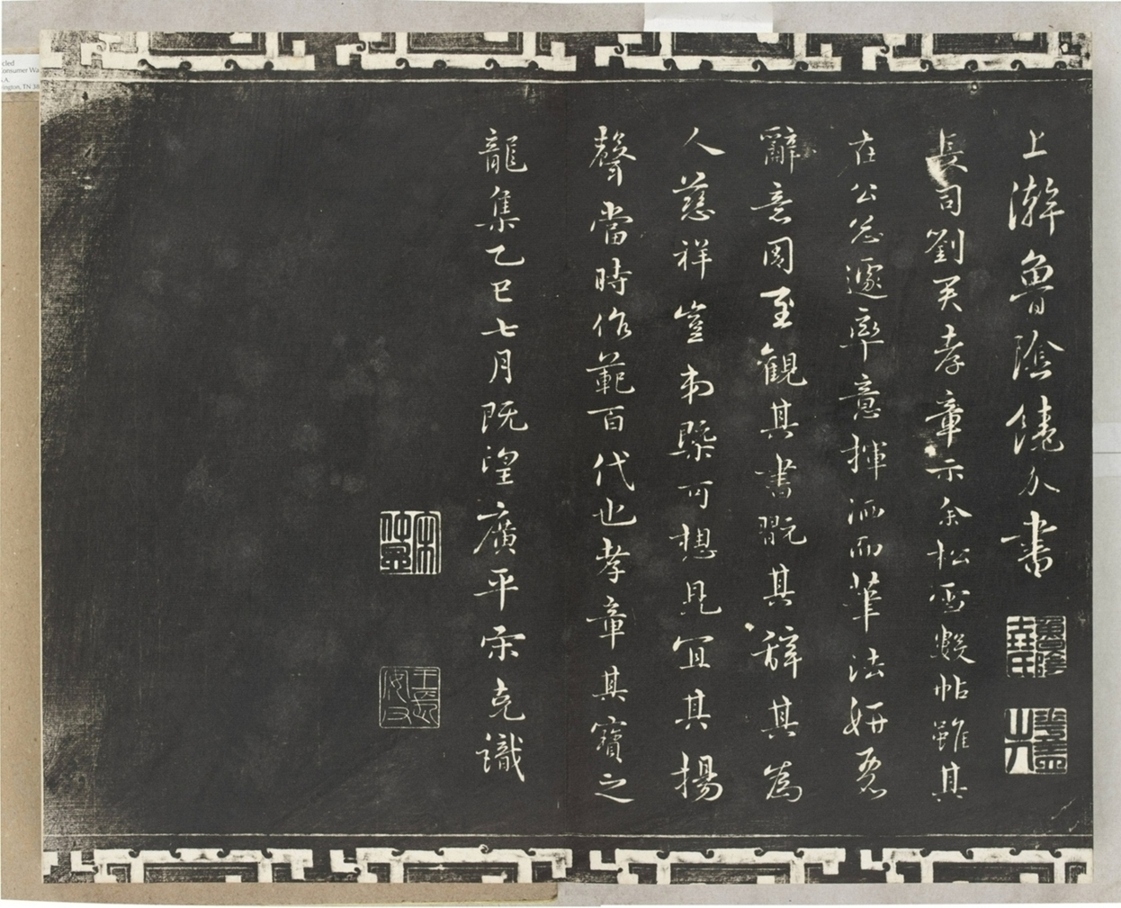 上澣魯陰饒介書
長司劉君孝章示余松雪數帖雖其
在公忩遽率意揮洒而筆法妍
辭意周至觀其書翫其辭其為
人慈祥豈弟槩可想見宜其揚
聲當時作範百代也孝章其寶之
龍集乙巳七月既望廣平宋克識
宋仲溫
cled
onsumer Wa